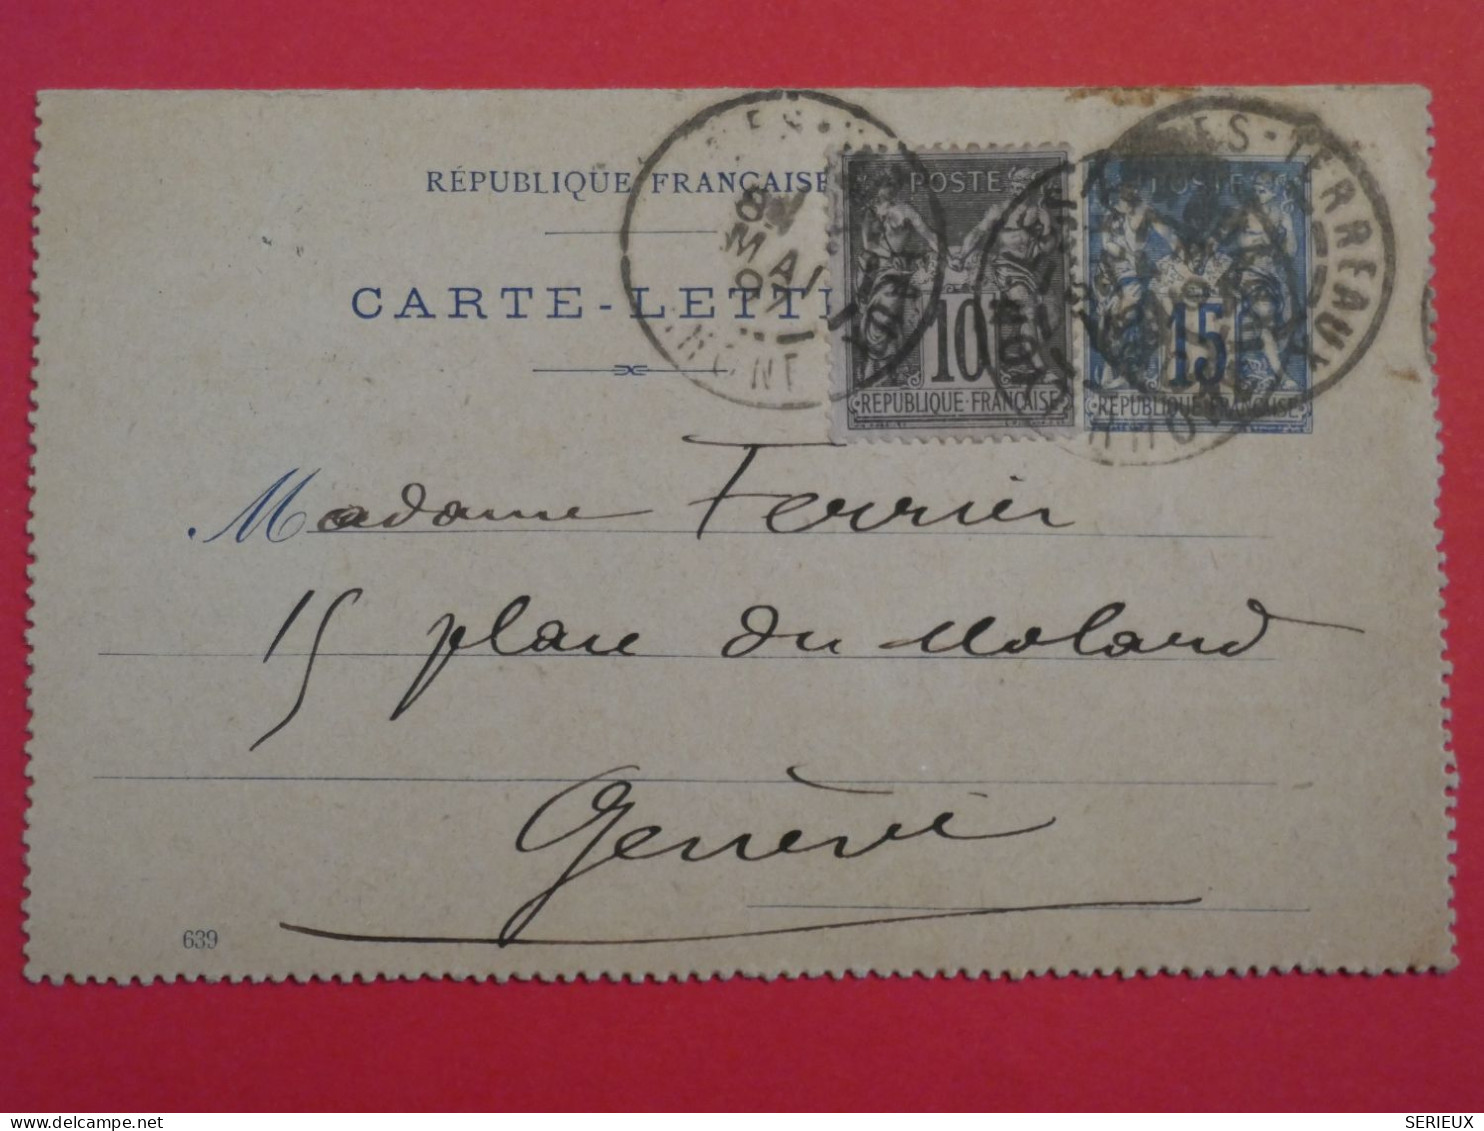 RÉPUBLIQUE FRANÇAISE
CARTE-LETTR
8
MAI
RHONE
POSTE
10
RÉPUBLIQUE·FRANÇAISE
POSTE
15
RÉPUBLIQUE·FRANÇAISE
ES-TERREAUX
RHONE
Madame Ferrier
15 place du Molard
Genève
639
delcampe.net
SERIEUX